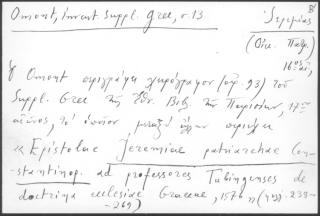 Omont, Invent. Suppl. Grec, σ. 13.
Ἱερεμίας Β΄
(Οἰκ. Πατρ.
16ος αἰ.
Ὁ Omont περιγράφει χειρόγραφον (ἀρ. 93) τοῦ
Suppl. Grec τῆς Ἐθν. Βιβ. τῶν Παρισίων, 17ου
αἰῶνος, τὸ ὁποῖον μεταξὺ ἄλλων περιέχει
« Epistolae Jeremiae patriarchae Con-
stantinop. ad professores Tubingenses de
doctrina ecclesiae Graecae, 1576 » (φφ. 239-
-269)